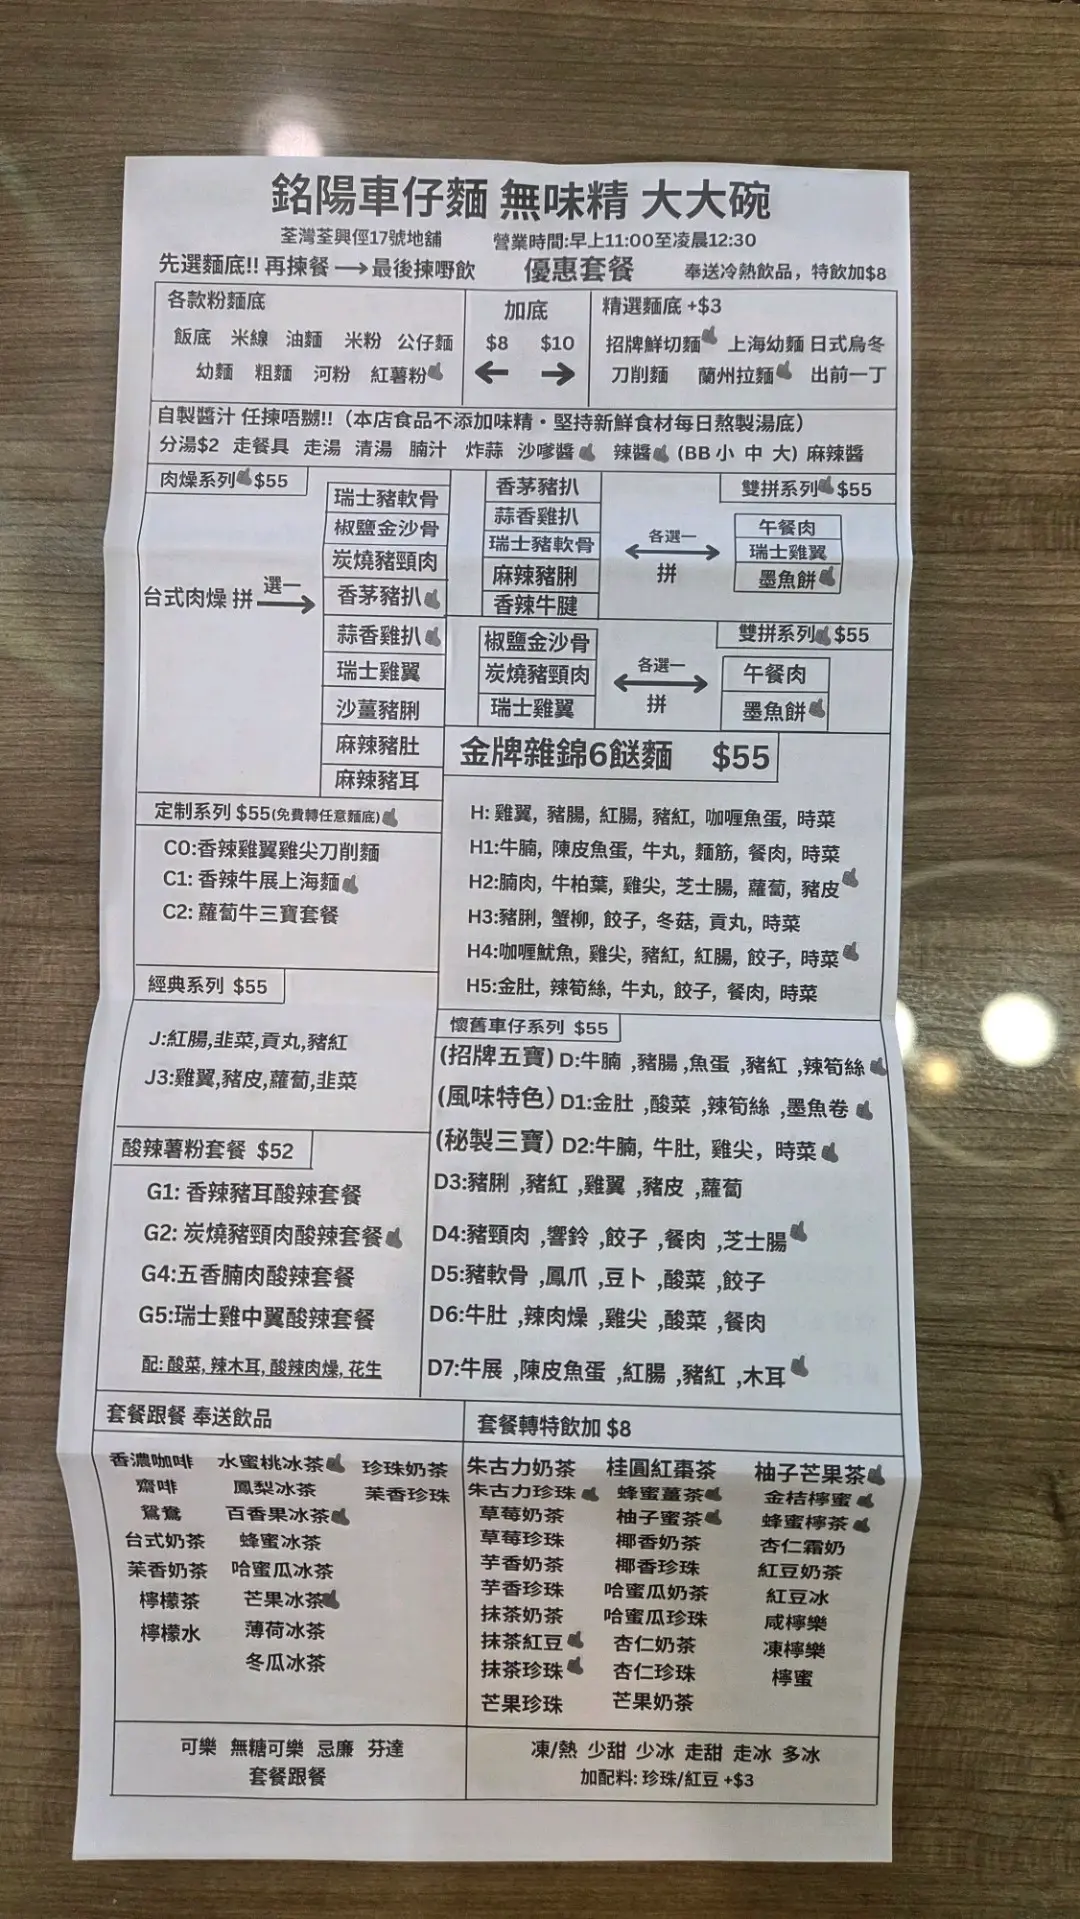 銘陽車仔麵 無味精 大大碗
荃灣荃興徑17號地舖 營業時間:早上11:00至凌晨12:30
先選麵底!! 再揀餐 → 最後揀嘢飲 優惠套餐 奉送冷熱飲品，特飲加$8
各款粉麵底
飯底 米線 油麵 米粉 公仔麵
幼麵 粗麵 河粉 紅薯粉
加底
$8 $10
精選麵底 +$3
招牌鮮切麵 上海幼麵 日式烏冬
刀削麵 蘭州拉麵 出前一丁
自製醬汁 任揀唔嬲!!（本店食品不添加味精・堅持新鮮食材每日熬製湯底）
分湯$2 走餐具 走湯 清湯 腩汁 炸蒜 沙嗲醬 辣醬 (BB 小 中 大) 麻辣醬
肉燥系列 $55
台式肉燥 拼 選一
瑞士豬軟骨
椒鹽金沙骨
炭燒豬頸肉
香茅豬扒
蒜香雞扒
瑞士雞翼
沙薑豬脷
麻辣豬肚
麻辣豬耳
雙拼系列 $55
香茅豬扒
蒜香雞扒
瑞士豬軟骨
麻辣豬脷
香辣牛腱
各選一
拼
午餐肉
瑞士雞翼
墨魚餅
雙拼系列 $55
椒鹽金沙骨
炭燒豬頸肉
瑞士雞翼
各選一
拼
午餐肉
墨魚餅
定制系列 $55(免費轉任意麵底)
C0:香辣雞翼雞尖刀削麵
C1: 香辣牛展上海麵
C2: 蘿蔔牛三寶套餐
金牌雜錦6餸麵 $55
H: 雞翼, 豬腸, 紅腸, 豬紅, 咖喱魚蛋, 時菜
H1:牛腩, 陳皮魚蛋, 牛丸, 麵筋, 餐肉, 時菜
H2:腩肉, 牛柏葉, 雞尖, 芝士腸, 蘿蔔, 豬皮
H3:豬脷, 蟹柳, 餃子, 冬菇, 貢丸, 時菜
H4:咖喱魷魚, 雞尖, 豬紅, 紅腸, 餃子, 時菜
H5:金肚, 辣筍絲, 牛丸, 餃子, 餐肉, 時菜
經典系列 $55
J:紅腸,韭菜,貢丸,豬紅
J3:雞翼,豬皮,蘿蔔,韭菜
懷舊車仔系列 $55
(招牌五寶) D:牛腩 ,豬腸 ,魚蛋 ,豬紅 ,辣筍絲
(風味特色) D1:金肚 ,酸菜 ,辣筍絲 ,墨魚卷
(秘製三寶) D2:牛腩, 牛肚, 雞尖， 時菜
D3:豬脷 ,豬紅 ,雞翼 ,豬皮 ,蘿蔔
D4:豬頸肉 ,響鈴 ,餃子 ,餐肉 ,芝士腸
D5:豬軟骨 ,鳳爪 ,豆卜 ,酸菜 ,餃子
D6:牛肚 ,辣肉燥 ,雞尖 ,酸菜 ,餐肉
D7:牛展 ,陳皮魚蛋 ,紅腸 ,豬紅 ,木耳
酸辣薯粉套餐 $52
G1: 香辣豬耳酸辣套餐
G2: 炭燒豬頸肉酸辣套餐
G4:五香腩肉酸辣套餐
G5:瑞士雞中翼酸辣套餐
配: 酸菜, 辣木耳, 酸辣肉燥, 花生
套餐跟餐 奉送飲品
香濃咖啡 水蜜桃冰茶 珍珠奶茶
齋啡 鳳梨冰茶 茉香珍珠
鴛鴦 百香果冰茶
台式奶茶 蜂蜜冰茶
茉香奶茶 哈蜜瓜冰茶
檸檬茶 芒果冰茶
檸檬水 薄荷冰茶
冬瓜冰茶
套餐轉特飲加 $8
朱古力奶茶 桂圓紅棗茶 柚子芒果茶
朱古力珍珠 蜂蜜薑茶 金桔檸蜜
草莓奶茶 柚子蜜茶 蜂蜜檸茶
草莓珍珠 椰香奶茶 杏仁霜奶
芋香奶茶 椰香珍珠 紅豆奶茶
芋香珍珠 哈蜜瓜奶茶 紅豆冰
抹茶奶茶 哈蜜瓜珍珠 咸檸樂
抹茶紅豆 杏仁奶茶 凍檸樂
抹茶珍珠 杏仁珍珠 檸蜜
芒果珍珠 芒果奶茶
可樂 無糖可樂 忌廉 芬達
套餐跟餐
凍/熱 少甜 少冰 走甜 走冰 多冰
加配料: 珍珠/紅豆 +$3